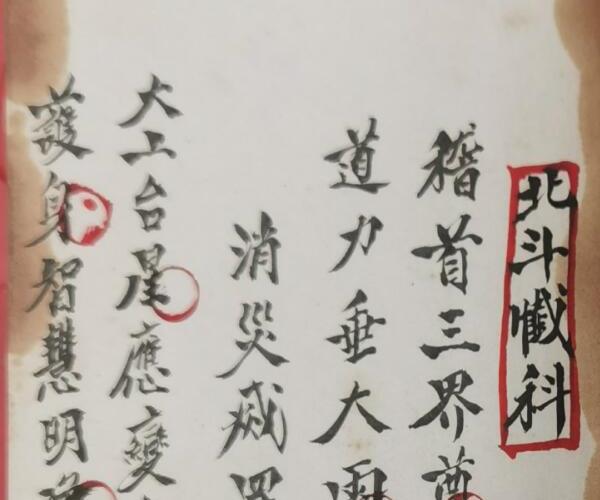 北斗懺科
稽首三界尊
道力垂大
消災滅罪
大上台星應變
護身智慧明